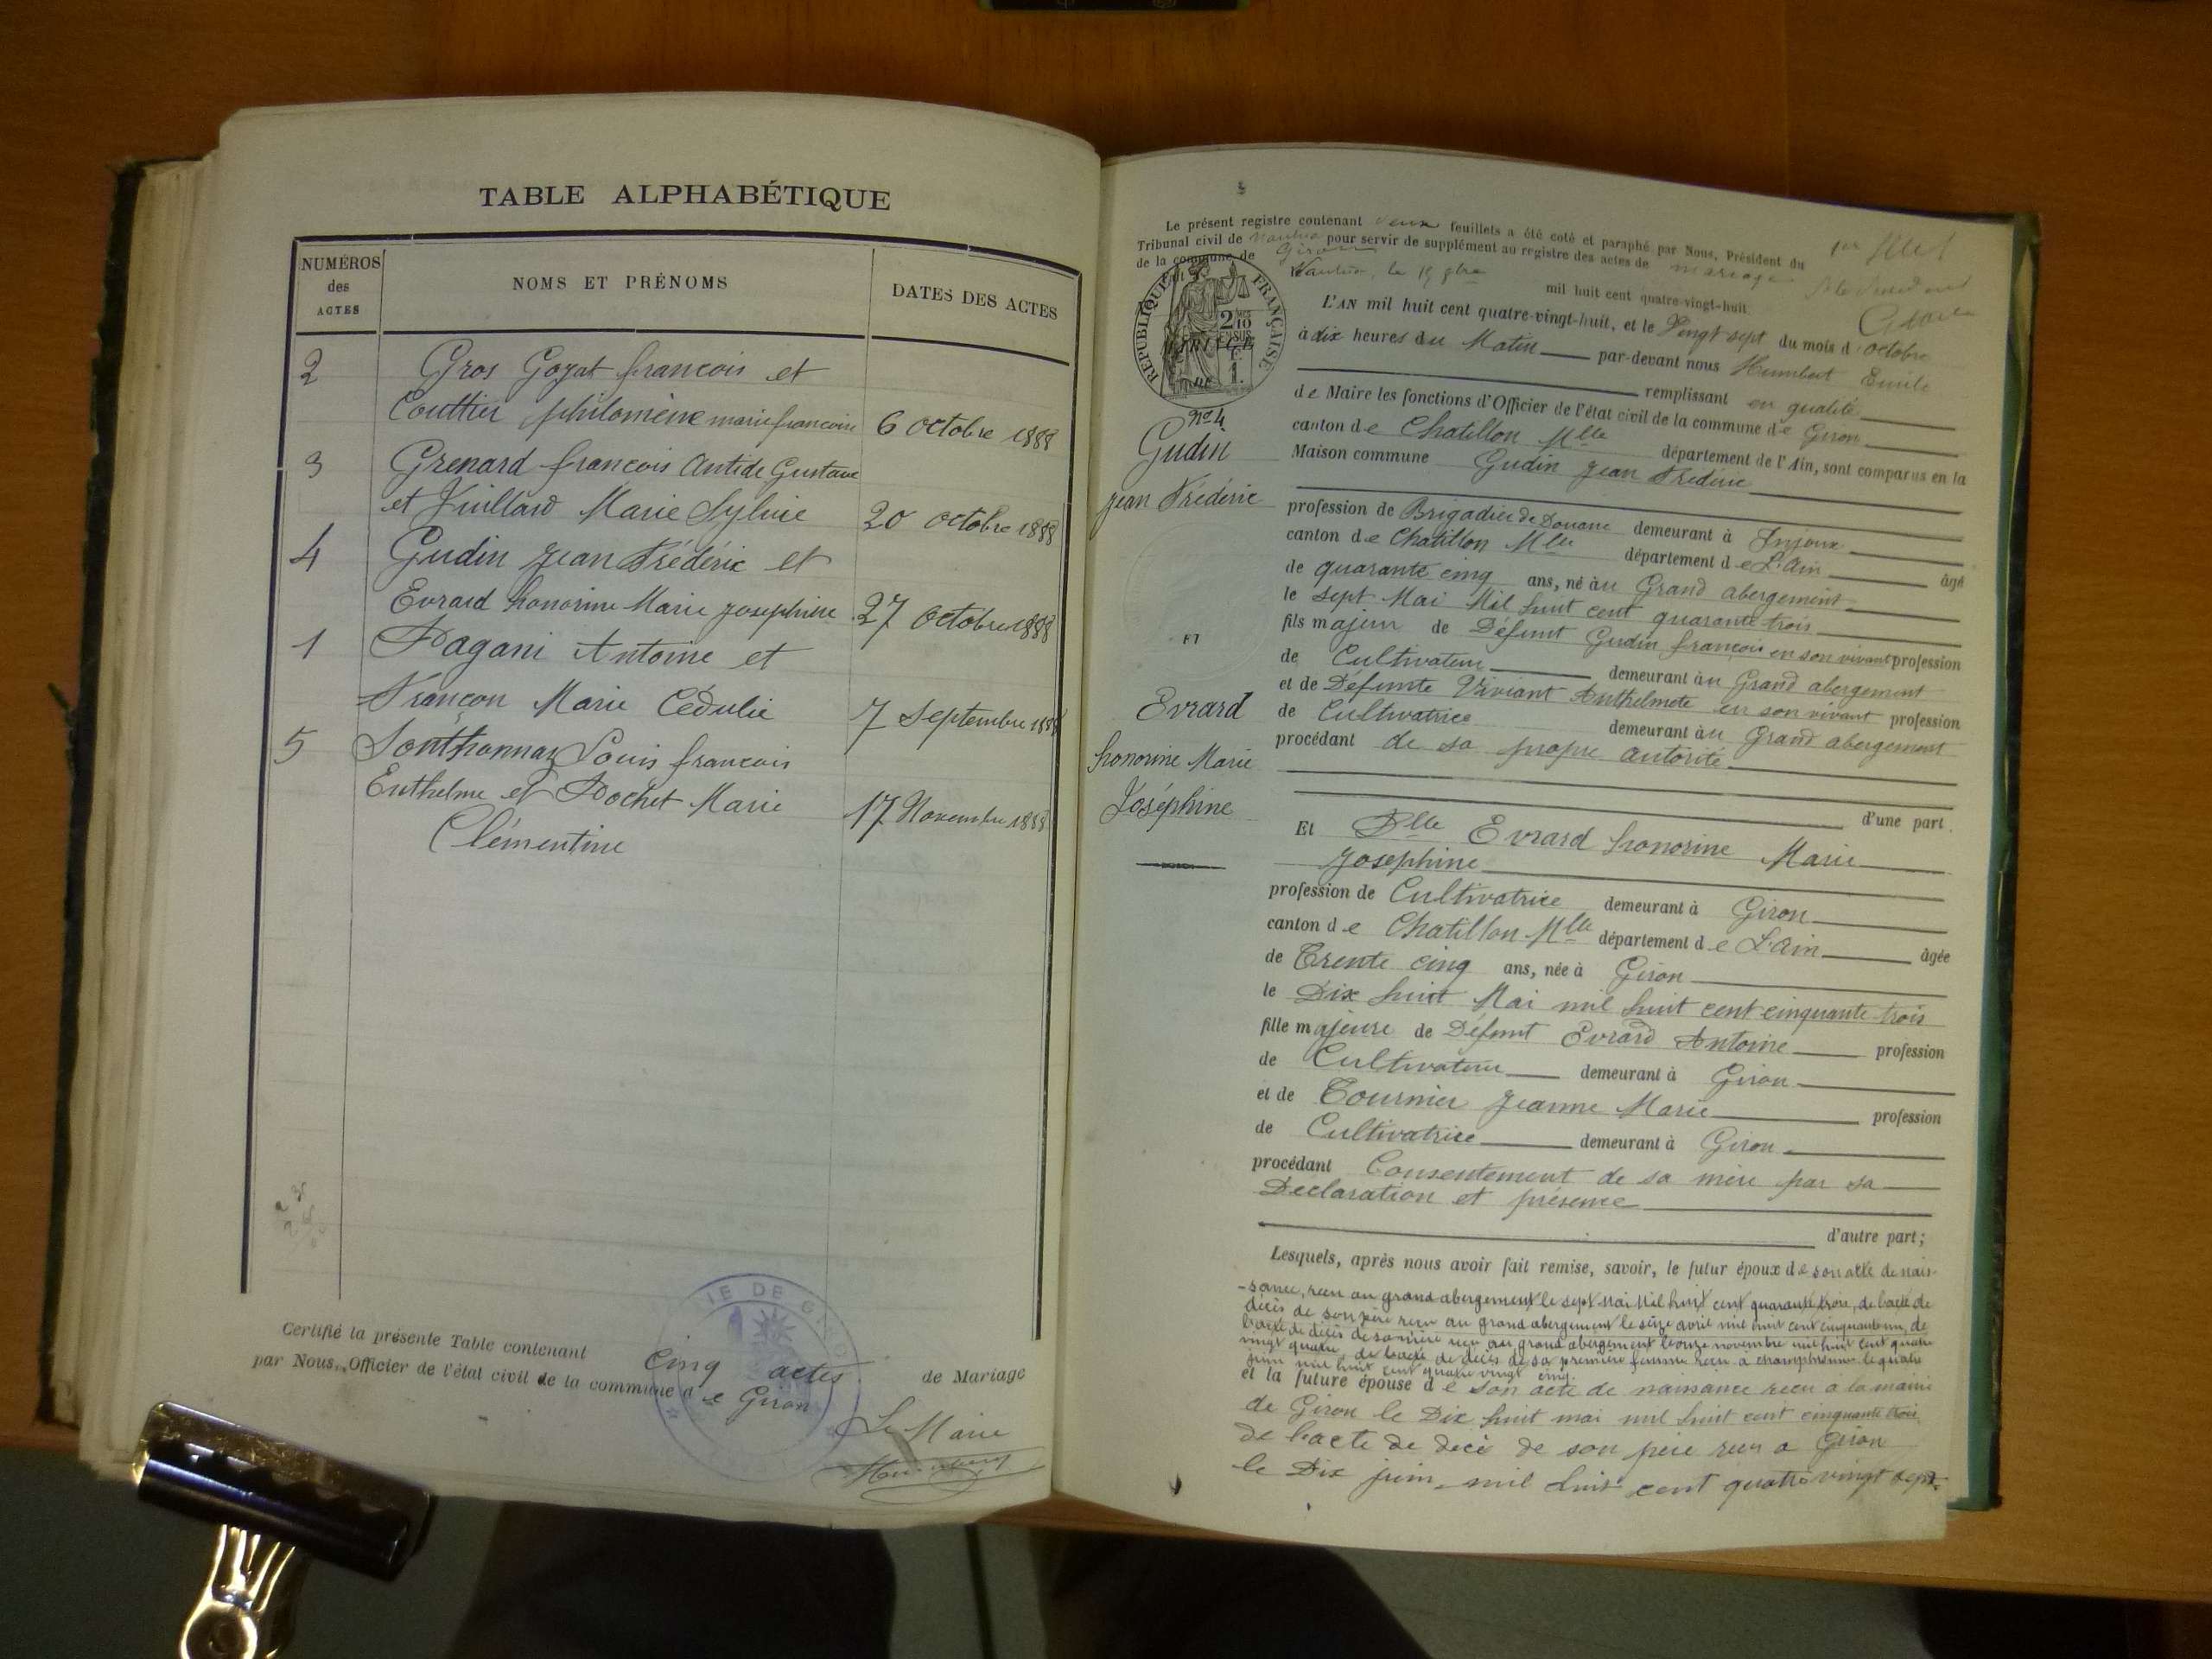 TABLE ALPHABÉTIQUE
NUMÉROS des ACTES
NOMS ET PRÉNOMS
DATES DES ACTES
2 Gros Goyat françois et
Couttier philomène marie françoise 6 octobre 1888
3 Grenard françois Antide Gustave
et Vuillard Marie Sylvie 20 octobre 1888
4 Gudin Jean Frédéric et
Evrard honorine Marie Josephine 27 octobre 1888
1 Pagani Antoine et
Françon Marie Cédulie 7 Septembre 1888
5 Sonthonnax Louis françois
Enthelme et Pochet Marie
Clémentine 17 Novembre 1888
Certifié la présente Table contenant cinq actes de Mariage
par Nous, Officier de l'état civil de la commune de Giron
Le Maire
Le présent registre contenant deux feuillets a été coté et paraphé par Nous, Président du
Tribunal civil de Nantua pour servir de supplément au registre des actes de mariage
de la commune de Giron
Nantua, le 15 9bre mil huit cent quatre-vingt-huit
RÉPUBLIQUE FRANÇAISE
2/10 EN SUS
L'AN mil huit cent quatre-vingt-huit, et le Vingt sept du mois d'octobre
à dix heures du Matin par-devant nous Humbert Emile
remplissant en qualité
de Maire les fonctions d'Officier de l'état civil de la commune de Giron
canton de Chatillon Mlle département de l'Ain, sont comparus en la
Maison commune Gudin Jean Frédéric
No 4
Gudin
Jean Frédéric
ET
Evrard
honorine Marie
Joséphine
profession de Brigadier de Douane demeurant à Injoux
canton de Chatillon Mlle département de L'Ain âgé
de quarante cinq ans, né au Grand abergement
le sept Mai Mil huit cent quarante trois
fils majeur de Défunt Gudin françois en son vivant profession
de Cultivateur demeurant au Grand abergement
et de Défunte Viviant Anthelmete en son vivant profession
de Cultivatrice demeurant au Grand abergement
procédant de sa propre autorité
d'une part.
Et Dlle Evrard honorine Marie
Josephine
profession de Cultivatrice demeurant à Giron
canton de Chatillon Mlle département de L'Ain âgée
de Trente cinq ans, née à Giron
le Dix huit Mai mil huit cent cinquante trois
fille majeure de Défunt Evrard Antoine profession
de Cultivateur demeurant à Giron
et de Tournier Jeanne Marie profession
de Cultivatrice demeurant à Giron
procédant Consentement de sa mère par sa
Declaration et présence
d'autre part;
Lesquels, après nous avoir fait remise, savoir, le futur époux de son acte de nais-
-sance, reçu au grand abergement le sept Mai Mil huit cent quarante trois, de l'acte de
décès de son père reçu au grand abergement le seize avril mil huit cent cinquante un, de
l'acte de décès de sa mère reçu au grand abergement le onze novembre mil huit cent quatre
vingt quatre, de l'acte de décès de sa première femme reçu a champfromier le quatre
juin mil huit cent quatre vingt cinq.
et la future épouse de son acte de naissance reçu à la mairie
de Giron le Dix huit mai mil huit cent cinquante trois
de l'acte de décè de son père reçu a Giron
le Dix juin mil huit cent quatre vingt sept.